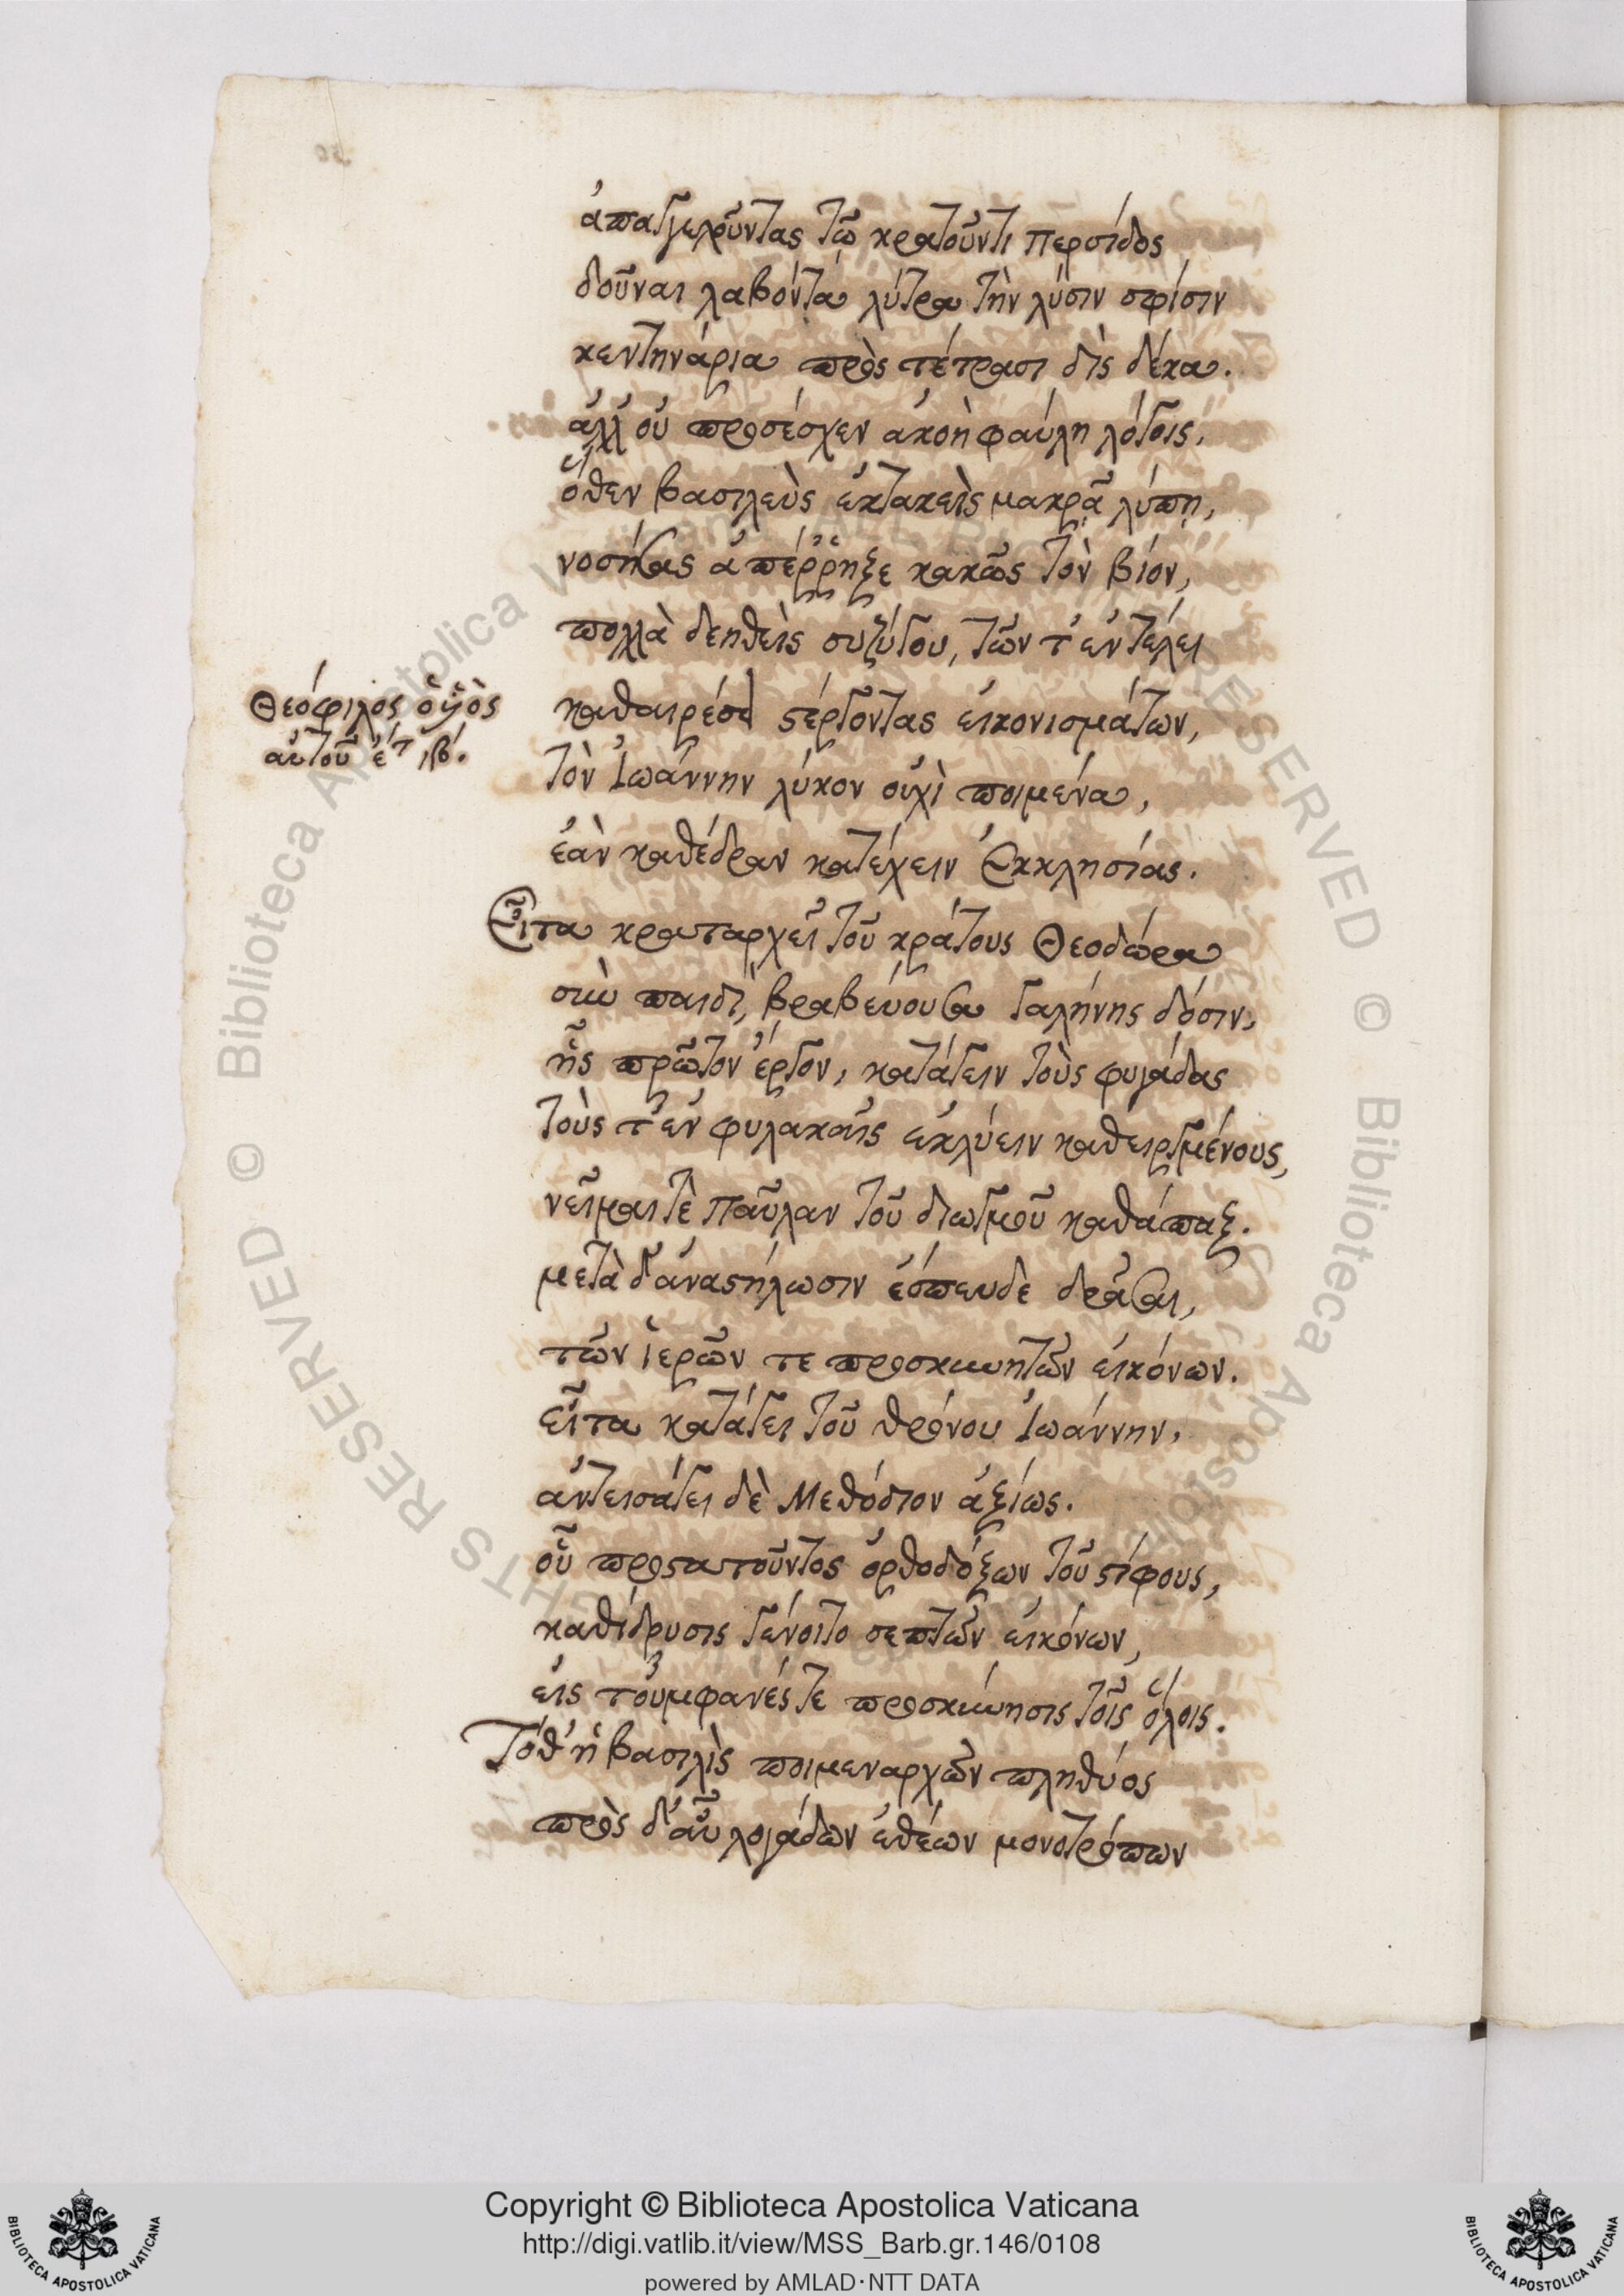 ἀπαγγελοῦντας τῷ κρατοῦντι Περσίδος
δοῦναι λαβόντα λύτρα τὴν λύσιν σφίσιν
κεντηνάρια πρὸς τέτρασι δὶς δέκα.
ἀλλ' οὐ προσέσχεν ἀκοὴ φαύλη λόγοις,
ὅθεν βασιλεὺς ἐκτακεὶς μακρᾷ λύπῃ,
νοσήσας ἀπέῤῥηξε κακῶς τὸν βίον,
πολλὰ δεηθεὶς συζύγου, τῶν τ' ἐν τέλει
Θεόφιλος ὁ υἱὸς
αὐτοῦ ἔτ ιβ'.
καθαιρέσει στέργοντας εἰκονισμάτων,
τὸν Ἰωάννην λύκον οὐχὶ ποιμένα,
ἐὰν καθέδραν κατέχειν Ἐκκλησίας.
Εἶτα κραταρχεῖ τοῦ κράτους Θεοδώρα
σὺν παιδὶ, βραβεύουσα γαλήνης δόσιν,
ἧς πρῶτον ἔργον, κατάγειν τοὺς φυγάδας
τοὺς τ' ἐν φυλακαῖς ἐκλύειν καθειργμένους,
νεῖμαι τὲ παῦλαν τοῦ διωγμοῦ καθάπαξ.
μετὰ δ' ἀναστήλωσιν ἔσπευδε δρᾶσαι,
τῶν ἱερῶν τε προσκυνητῶν εἰκόνων.
εἶτα κατάγει τοῦ θρόνου Ἰωάννην,
ἀντεισάγει δὲ Μεθόδιον ἀξίως.
οὗ προστατοῦντος ὀρθοδόξων τοῦ στίφους,
καθίδρυσις γένοιτο σεπτῶν εἰκόνων,
εἰς τοὐμφανές τε προσκύνησις τοῖς ὅλοις.
Τόθ' ἡ βασιλὶς ποιμεναρχῶν πληθύος
πρὸς δ' αὖ λογάδων ἐθέων μονοτρόπων
Copyright © Biblioteca Apostolica Vaticana
http://digi.vatlib.it/view/MSS_Barb.gr.146/0108
powered by AMLAD·NTT DATA